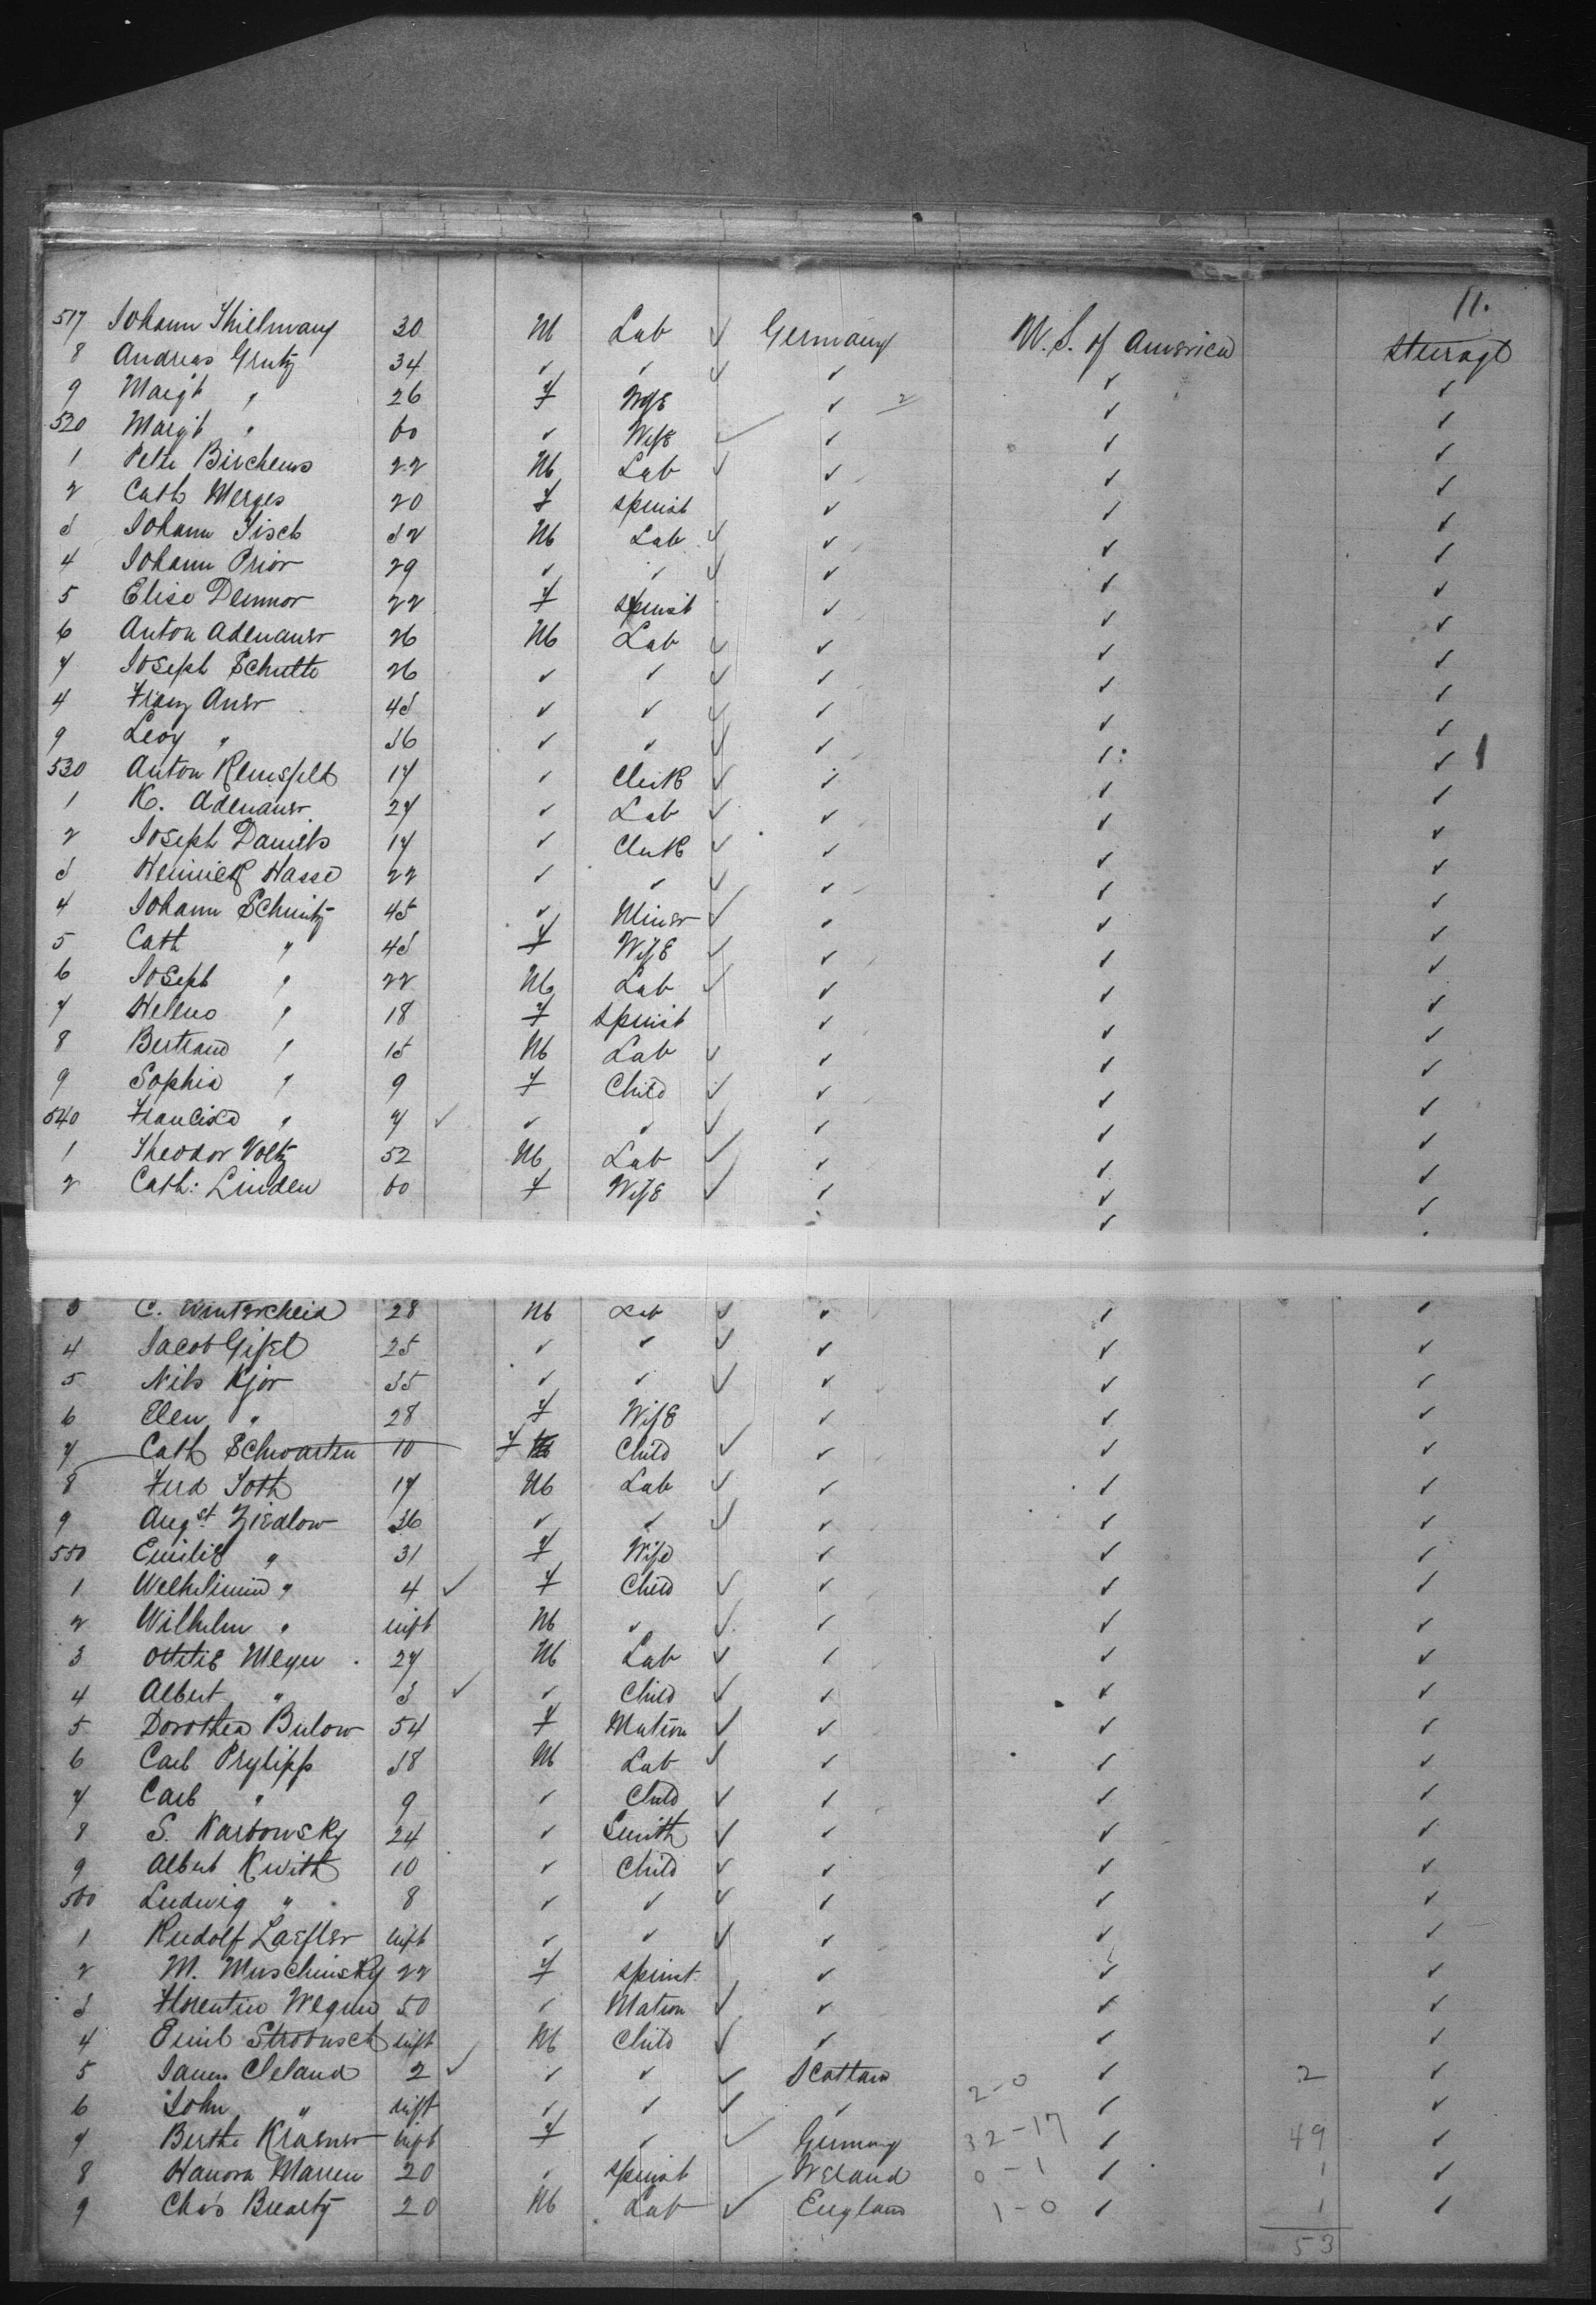 11.
517 Johann Thielmany 30 M Lab ✓ Germany U.S. of America Steerage
8 Andreas Grutz 34 ✓ ✓ ✓ ✓ ✓ ✓
9 Margt " 26 F Wife ✓ 2 ✓ ✓
520 Margt " 60 ✓ Wife ✓ ✓ ✓ ✓
1 Peter Birchens 22 M Lab ✓ ✓ ✓ ✓
2 Cath Merges 20 F Spinst ✓ ✓ ✓
3 Johann Tisch 32 M Lab ✓ ✓ ✓ ✓
4 Johann Prior 29 ✓ ✓ ✓ ✓ ✓ ✓
5 Elise Demmor 22 F Spinst ✓ ✓ ✓
6 Anton Adenauer 26 M Lab ✓ ✓ ✓ ✓
7 Joseph Schulte 26 ✓ ✓ ✓ ✓ ✓ ✓
4 Franz Auer 43 ✓ ✓ ✓ ✓ ✓ ✓
9 Leoy " 36 ✓ ✓ ✓ ✓ ✓ ✓
530 Anton 17 ✓ Clerk ✓ ✓ ✓ ✓
1 K. Adenauer 27 ✓ Lab ✓ ✓ ✓ ✓
2 Joseph Daniels 17 ✓ Clerk ✓ ✓ ✓ ✓
3 Heinrich Hasse 22 ✓ ✓ ✓ ✓ ✓ ✓
4 Johann Schmitz 45 ✓ Miner ✓ ✓ ✓ ✓
5 Cath " 43 F Wife ✓ ✓ ✓ ✓
6 Joseph " 22 M Lab ✓ ✓ ✓ ✓
7 Helene " 18 F Spinst ✓ ✓ ✓
8 Bertrand " 15 M Lab ✓ ✓ ✓ ✓
9 Sophia " 9 F Child ✓ ✓ ✓ ✓
540 Francisca " 7 ✓ ✓ ✓ ✓ ✓ ✓ ✓
1 Theodor Voltz 52 M Lab ✓ ✓ ✓ ✓
2 Cath: Linden 60 F Wife ✓ ✓ ✓ ✓
3 C. Winterscheid 28 M Lab ✓ ✓ ✓ ✓
4 Jacob Gifel 25 ✓ ✓ ✓ ✓ ✓ ✓
5 Nils Kjor 35 ✓ ✓ ✓ ✓ ✓ ✓
6 Elen " 28 F Wife ✓ ✓ ✓
7 Cath Schwarten 10 F M Child ✓ ✓ ✓ ✓
8 Ferd Toth 17 M Lab ✓ ✓ ✓ ✓
9 Augst. Ziedlow 36 ✓ ✓ ✓ ✓ ✓ ✓
550 Emilie " 31 F Wife ✓ ✓ ✓
1 Welhelmine " 4 ✓ F Child ✓ ✓ ✓ ✓
2 Wilhelm " inft M ✓ ✓ ✓ ✓ ✓
3 Ottitie Meyer 27 M Lab ✓ ✓ ✓ ✓
4 Albert " 3 ✓ ✓ Child ✓ ✓ ✓ ✓
5 Dorothea Bulow 54 F Matron ✓ ✓ ✓ ✓
6 Carl Prylipp 38 M Lab ✓ ✓ ✓ ✓
7 Carl " 9 ✓ Child ✓ ✓ ✓ ✓
8 S. Karbowsky 24 ✓ Smith ✓ ✓ ✓ ✓
9 Albert Kwith 10 ✓ Child ✓ ✓ ✓ ✓
560 Ludwig " 8 ✓ ✓ ✓ ✓ ✓ ✓
1 Rudolf Laefler inft ✓ ✓ ✓ ✓ ✓ ✓
2 M. Muschinsky 22 F Spinst ✓ ✓ ✓
3 Florentin Wegner 50 ✓ Matron ✓ ✓ ✓ ✓
4 Emil Strobusch inft M Child ✓ ✓ ✓ ✓
5 James Cleland 2 ✓ ✓ ✓ ✓ Scotland 2-0 ✓ 2 ✓
6 John " inft ✓ ✓ ✓ ✓ ✓ ✓
7 Bertha Krasner inft F ✓ ✓ Germany 32-17 ✓ 49 ✓
8 Hanora Marren 20 ✓ Spinst ✓ Ireland 0-1 ✓ 1 ✓
9 Chas Brearty 20 M Lab ✓ England 1-0 ✓ 1 ✓
53